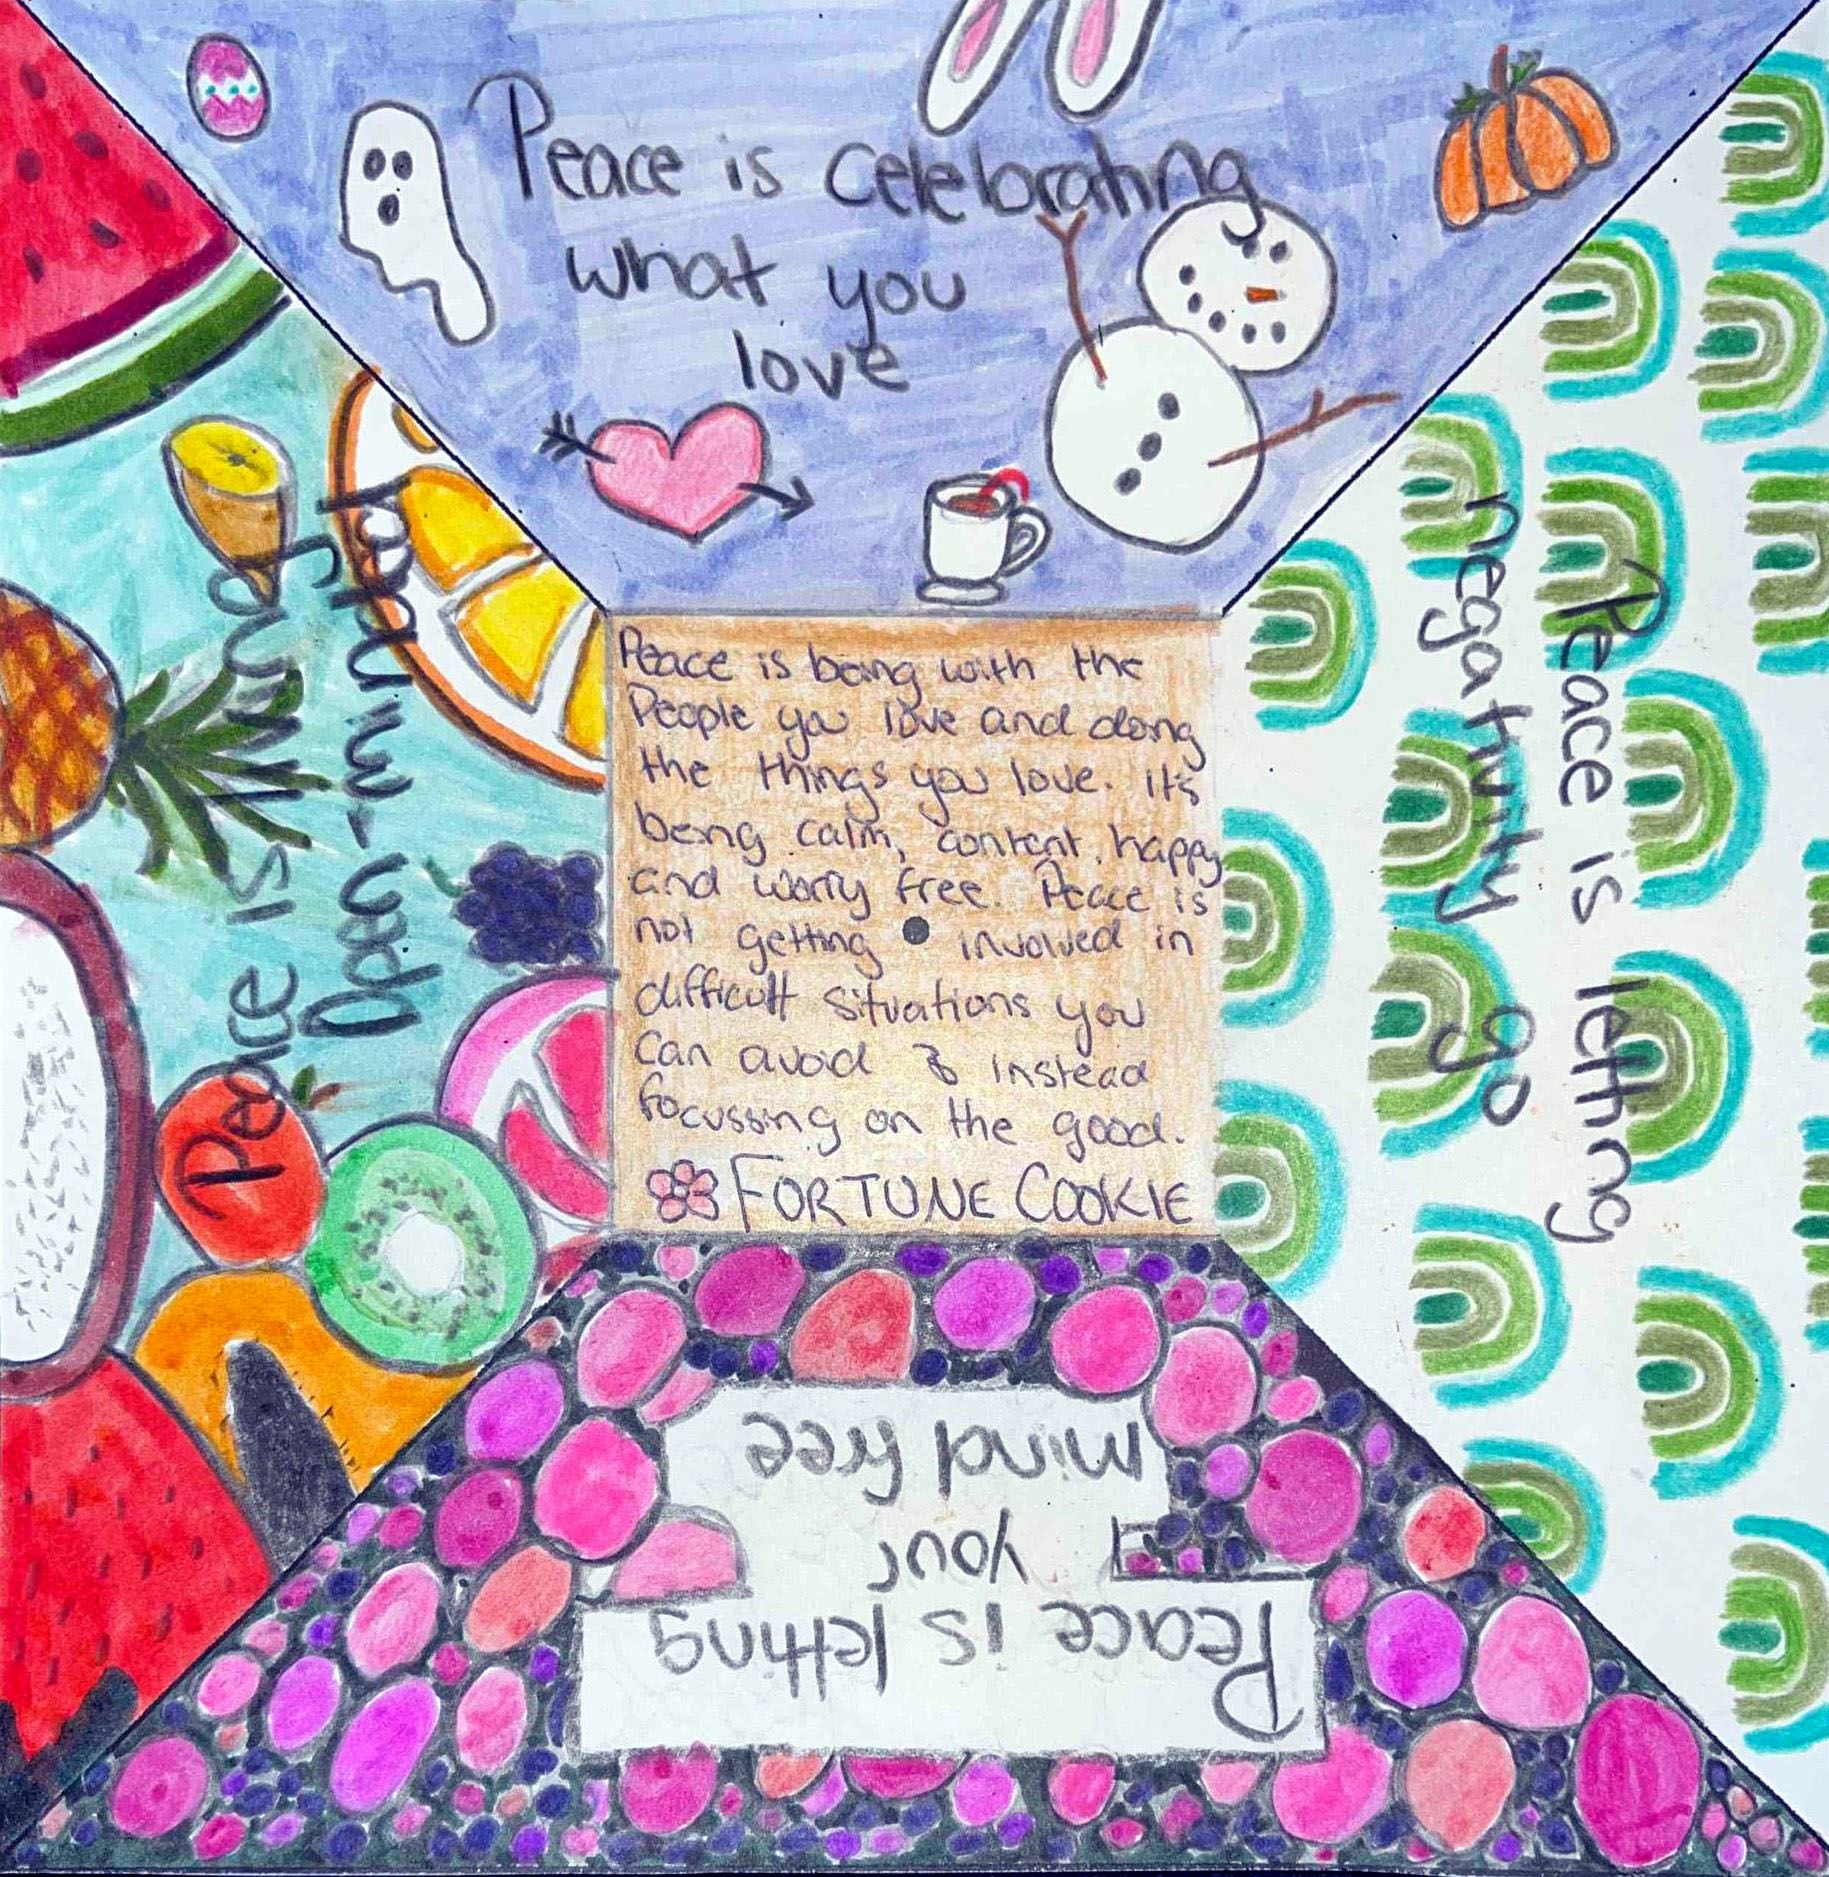 Peace is celebrating
what you
love
Peace is being
open-minded
Peace is being with the
People you love and doing
the things you love. it's
being calm, content, happy
and worry free. Peace is
not getting involved in
difficult situations you
can avoid & instead
focussing on the good.
FORTUNE COOKIE
Peace is letting
negativity go
Peace is letting
your
mind free